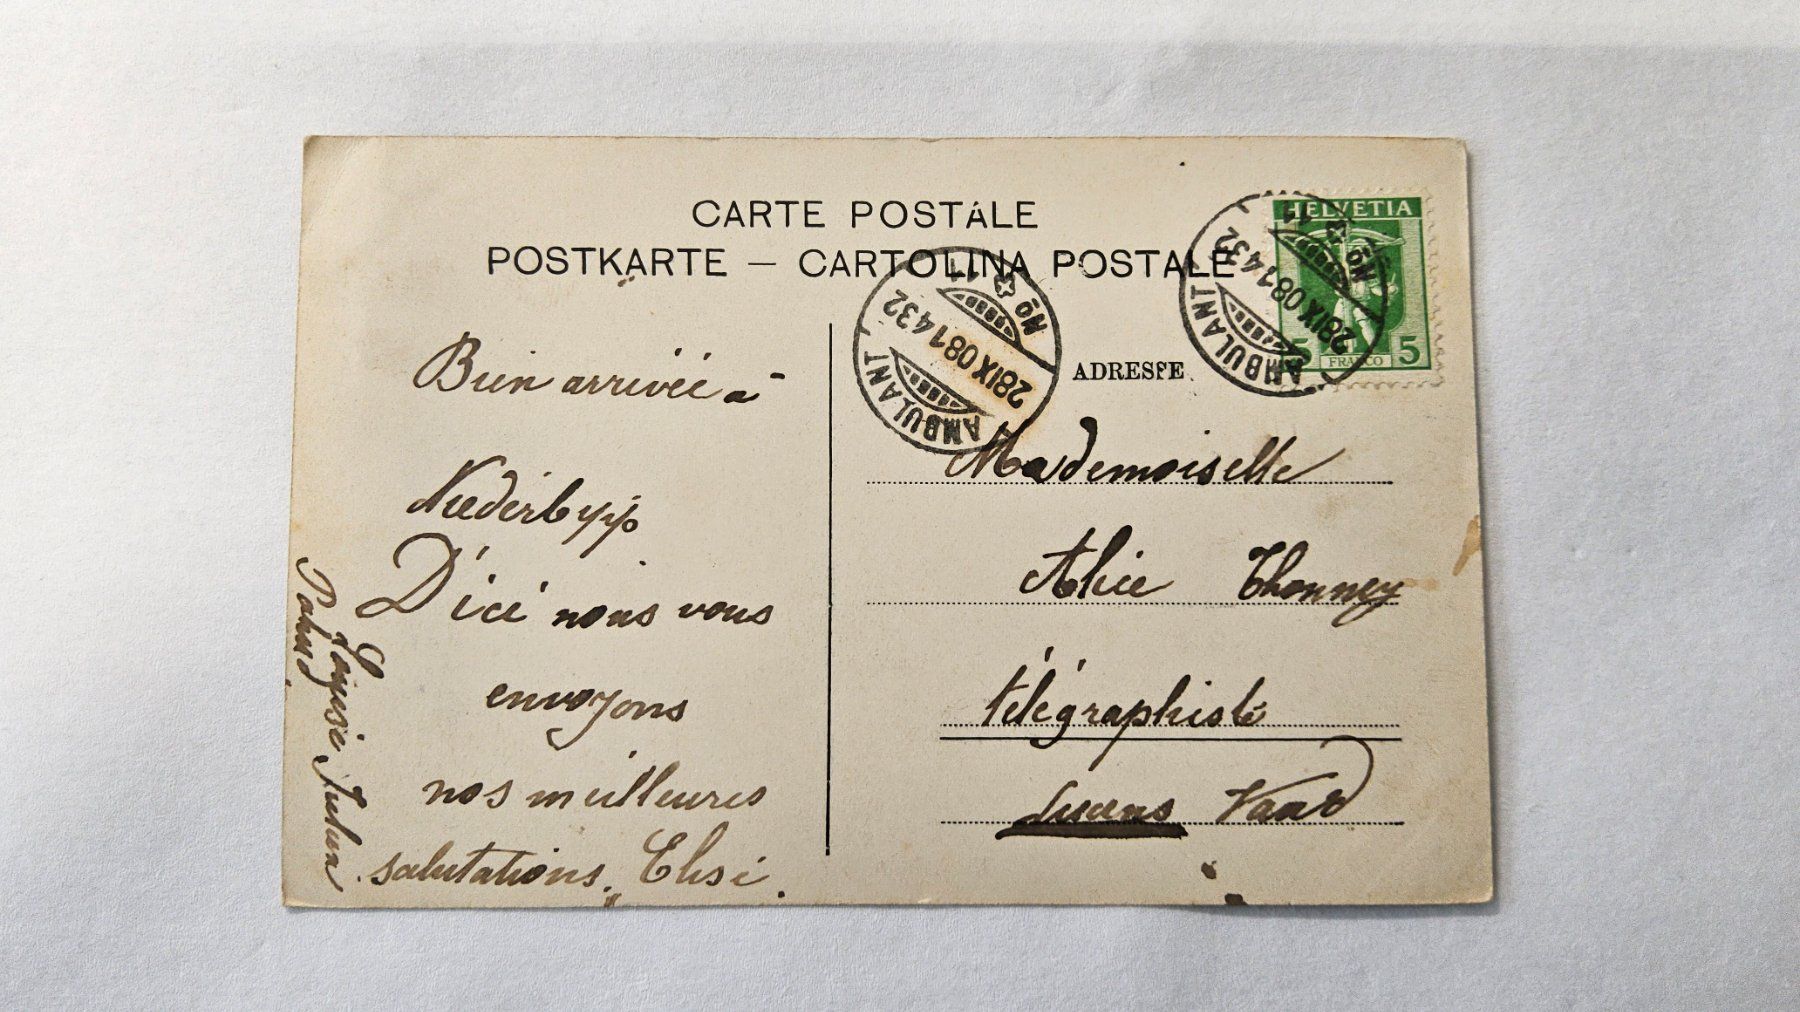 CARTE POSTALE
POSTKARTE — CARTOLINA POSTALE
HELVETIA
5 FRANCO 5
AMBULANT
No 11
28 IX 08 1432
AMBULANT
No 11
28 IX 08 1432
ADRESSE
Bien arrivée à
Niederbipp
D'ici nous vous
envoyons
nos meilleures
salutations. Elisé.
Pahud
Mademoiselle
Alice Thonney
télégraphiste
Lucens Vaud